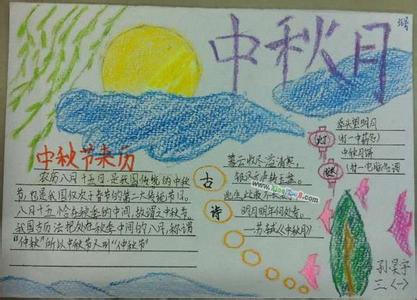 中秋月
中秋节来历
农历八月十五日,是我国传统的中秋
节,也是我国仅次于春节的第二大传统节日。
八月十五恰在秋季的中间,故谓之中秋节。
我国古历法把处在秋季中间的八月,称谓
“仲秋”所以中秋节又叫“仲秋节”
古诗
暮云收尽溢清寒,
银汉无声转玉盘。
此生此夜不长好,
明月明年何处看。
—苏轼《中秋月》
灯谜
举头望明月
(对一中药名)
中秋月饼
(对一电脑名词)
三(一)